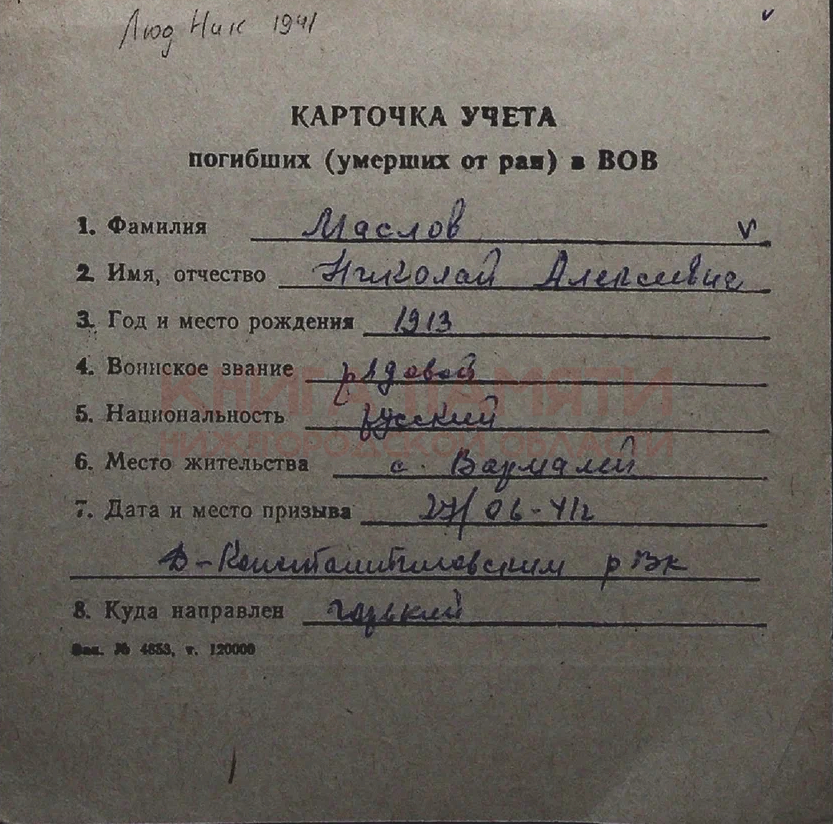 Люд Ник 1941
КАРТОЧКА УЧЕТА
погибших (умерших от ран) в ВОВ
1. Фамилия Маслов
2. Имя, отчество Николай Алексеевич
3. Год и место рождения 1913
4. Воинское звание рядовой
КНИГА ПАМЯТИ
5. Национальность русский
НИЖЕГОРОДСКОЙ ОБЛАСТИ
6. Место жительства с. Вармалей
7. Дата и место призыва 27/06-41г
Д-Константиновским рвк
8. Куда направлен горький
Зак. № 4853, т. 120000